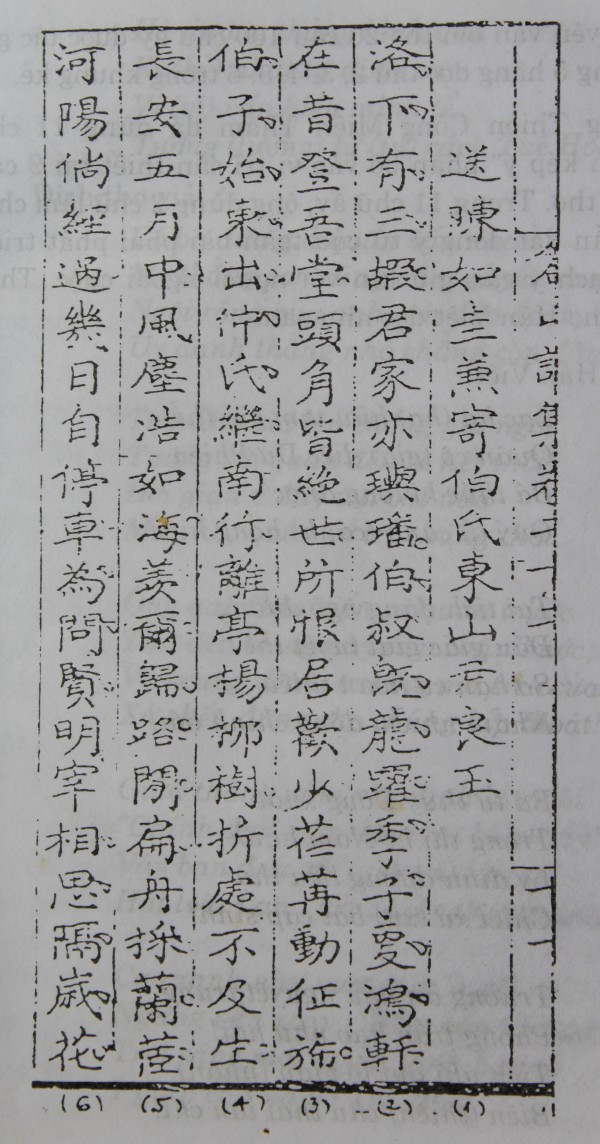 山詩集卷
送陳如圭兼寄伯氏東山弓良玉
洛下有三嘏君家亦璵璠伯叔龍躍季子更軒
在昔登吾堂頭角皆絕世所恨居歡少荏冉動征旆
伯子始東出沖氏繼南行離亭楊柳樹折處不及生
長安五月中風塵浩如海羨爾歸路閒扁舟採蘭茝
河陽倘經過幾日自停車為問賢明宰相思隔歲花
(6) (5) (4) (3) (2) (1)